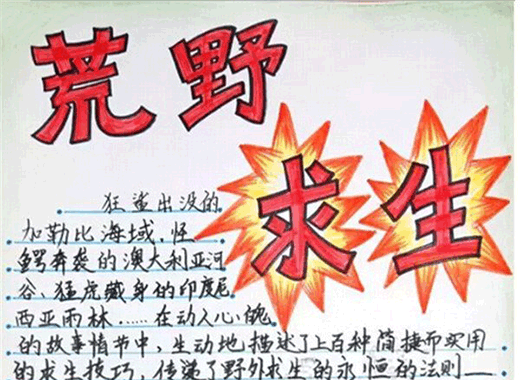 荒野
求生
狂鲨出没的
加勒比海域.怪
鳄奔袭的澳大利亚河
谷、猛虎藏身的印度尼
西亚雨林……在动人心魄
的故事情节中,生动地描述了上百种简捷而实用
的求生技巧,传递了野外求生的永恒的法则——